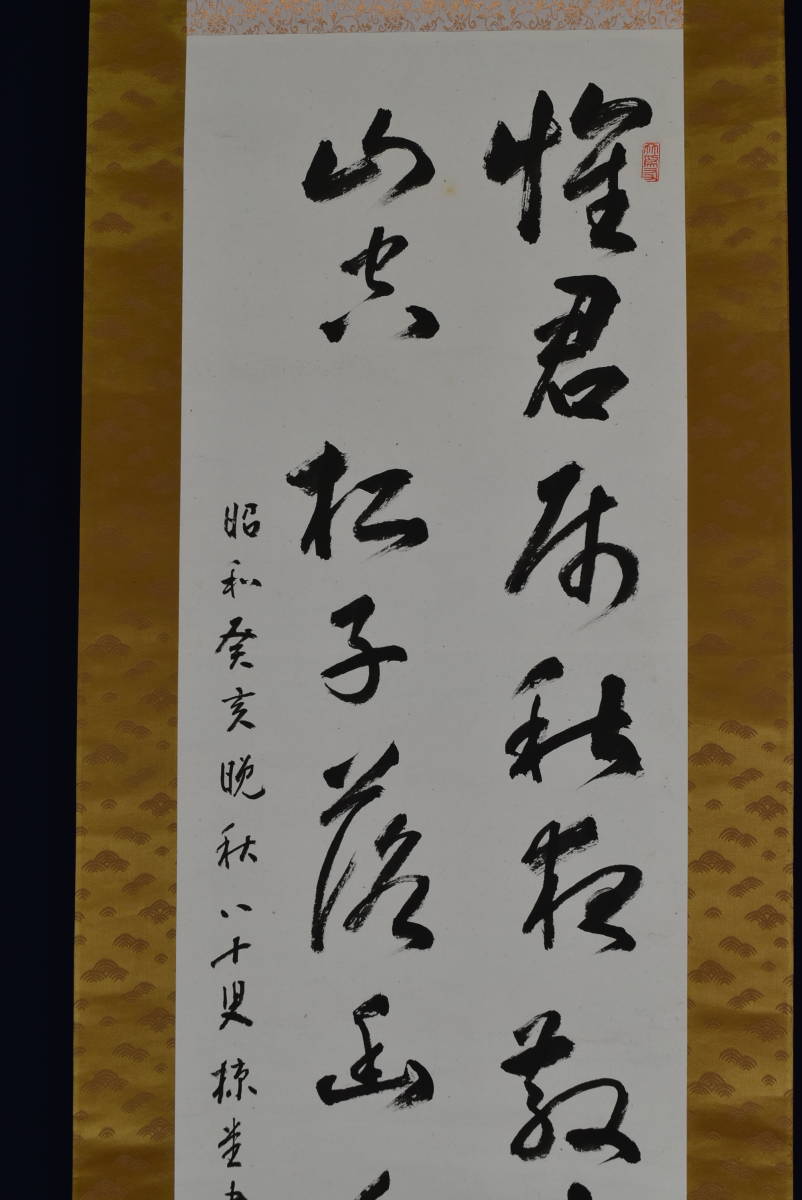 懐君属秋夜散
山空松子落幽
昭和癸亥晩秋八十叟椋堂